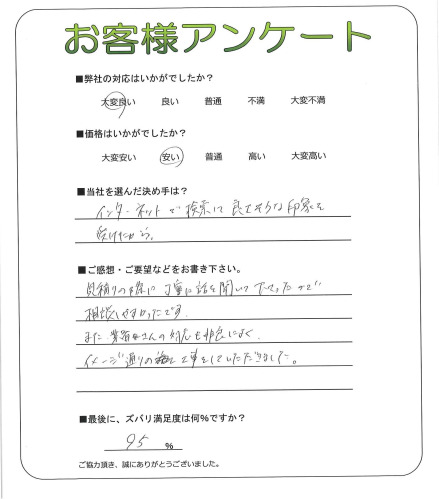 お客様アンケート
■弊社の対応はいかがでしたか?
大変良い 良い 普通 不満 大変不満
■価格はいかがでしたか?
大変安い 安い 普通 高い 大変高い
■当社を選んだ決め手は?
インターネットで検索して良さそうな印象を
受けたから。
■ご感想・ご要望などをお書き下さい。
見積りの際に丁寧に話を聞いて下さったので
相談しやすかったです。
また、業者さんの対応も非常に良く、
イメージ通りの工事をしていただきました。
■最後に、ズバリ満足度は何%ですか?
95 %
ご協力頂き、誠にありがとうございました。